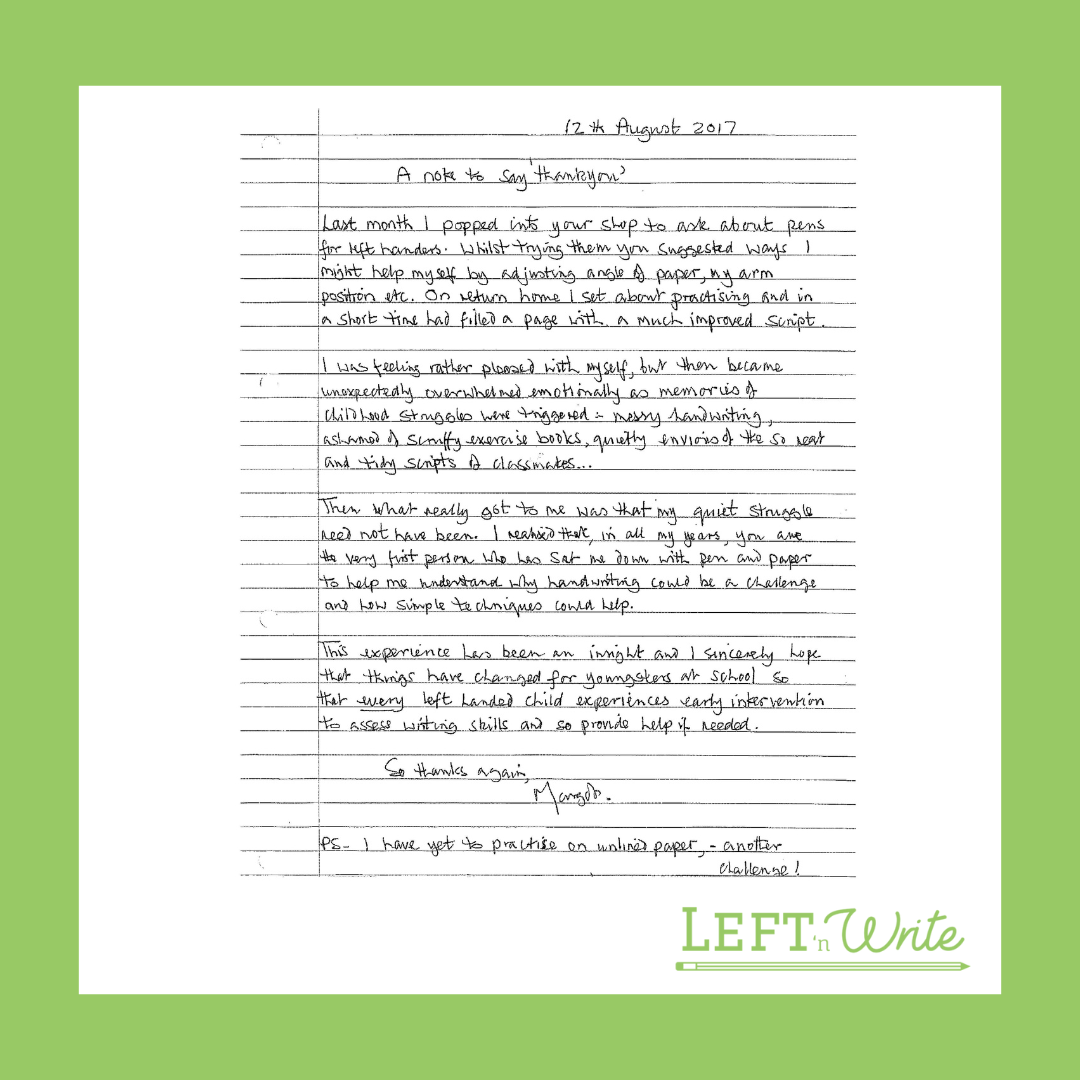 12th August 2017
A note to say 'thankyou'
Last month I popped into your shop to ask about pens
for left handers. Whilst trying them you suggested ways I
might help myself by adjusting angle of paper, my arm
position etc. On return home I set about practising and in
a short time had filled a page with a much improved script.
I was feeling rather pleased with myself, but then became
unexpectedly overwhelmed emotionally as memories of
childhood struggles were triggered :- messy handwriting,
ashamed of scruffy exercise books, quietly envious of the so neat
and tidy scripts of classmates...
Then what really got to me was that my quiet struggle
need not have been. I realised that, in all my years, you are
the very first person who has sat me down with pen and paper
to help me understand why handwriting could be a challenge
and how simple techniques could help.
This experience has been an insight and I sincerely hope
that things have changed for youngsters at school so
that every left handed child experiences early intervention
to assess writing skills and so provide help if needed.
So thanks again,
Margot.
PS - I have yet to practise on unlined paper, - another
challenge!
LEFT 'n Write